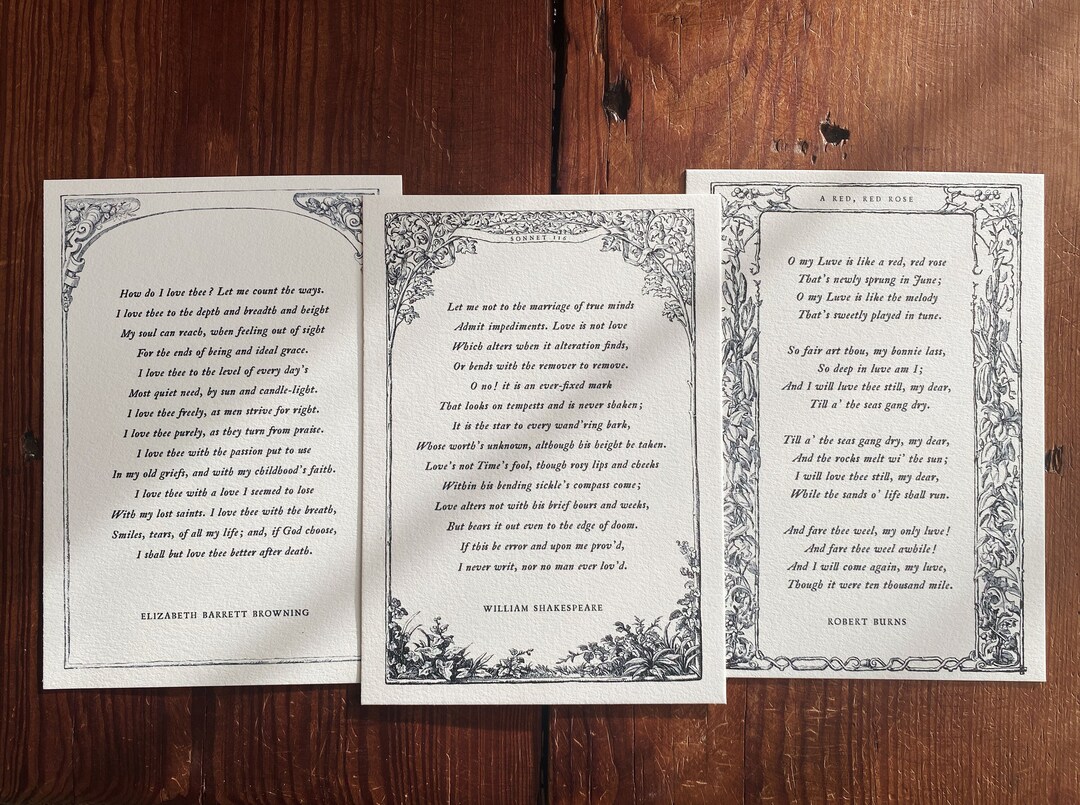 How do I love thee? Let me count the ways.
I love thee to the depth and breadth and height
My soul can reach, when feeling out of sight
For the ends of being and ideal grace.
I love thee to the level of every day's
Most quiet need, by sun and candle-light.
I love thee freely, as men strive for right.
I love thee purely, as they turn from praise.
I love thee with the passion put to use
In my old griefs, and with my childhood's faith.
I love thee with a love I seemed to lose
With my lost saints. I love thee with the breath,
Smiles, tears, of all my life; and, if God choose,
I shall but love thee better after death.
ELIZABETH BARRETT BROWNING
SONNET 116
Let me not to the marriage of true minds
Admit impediments. Love is not love
Which alters when it alteration finds,
Or bends with the remover to remove.
O no! it is an ever-fixed mark
That looks on tempests and is never shaken;
It is the star to every wand'ring bark,
Whose worth's unknown, although his height be taken.
Love's not Time's fool, though rosy lips and cheeks
Within his bending sickle's compass come;
Love alters not with his brief hours and weeks,
But bears it out even to the edge of doom.
If this be error and upon me prov'd,
I never writ, nor no man ever lov'd.
WILLIAM SHAKESPEARE
A RED, RED ROSE
O my Luve is like a red, red rose
That's newly sprung in June;
O my Luve is like the melody
That's sweetly played in tune.
So fair art thou, my bonnie lass,
So deep in luve am I;
And I will luve thee still, my dear,
Till a' the seas gang dry.
Till a' the seas gang dry, my dear,
And the rocks melt wi' the sun;
I will love thee still, my dear,
While the sands o' life shall run.
And fare thee weel, my only luve!
And fare thee weel awhile!
And I will come again, my luve,
Though it were ten thousand mile.
ROBERT BURNS